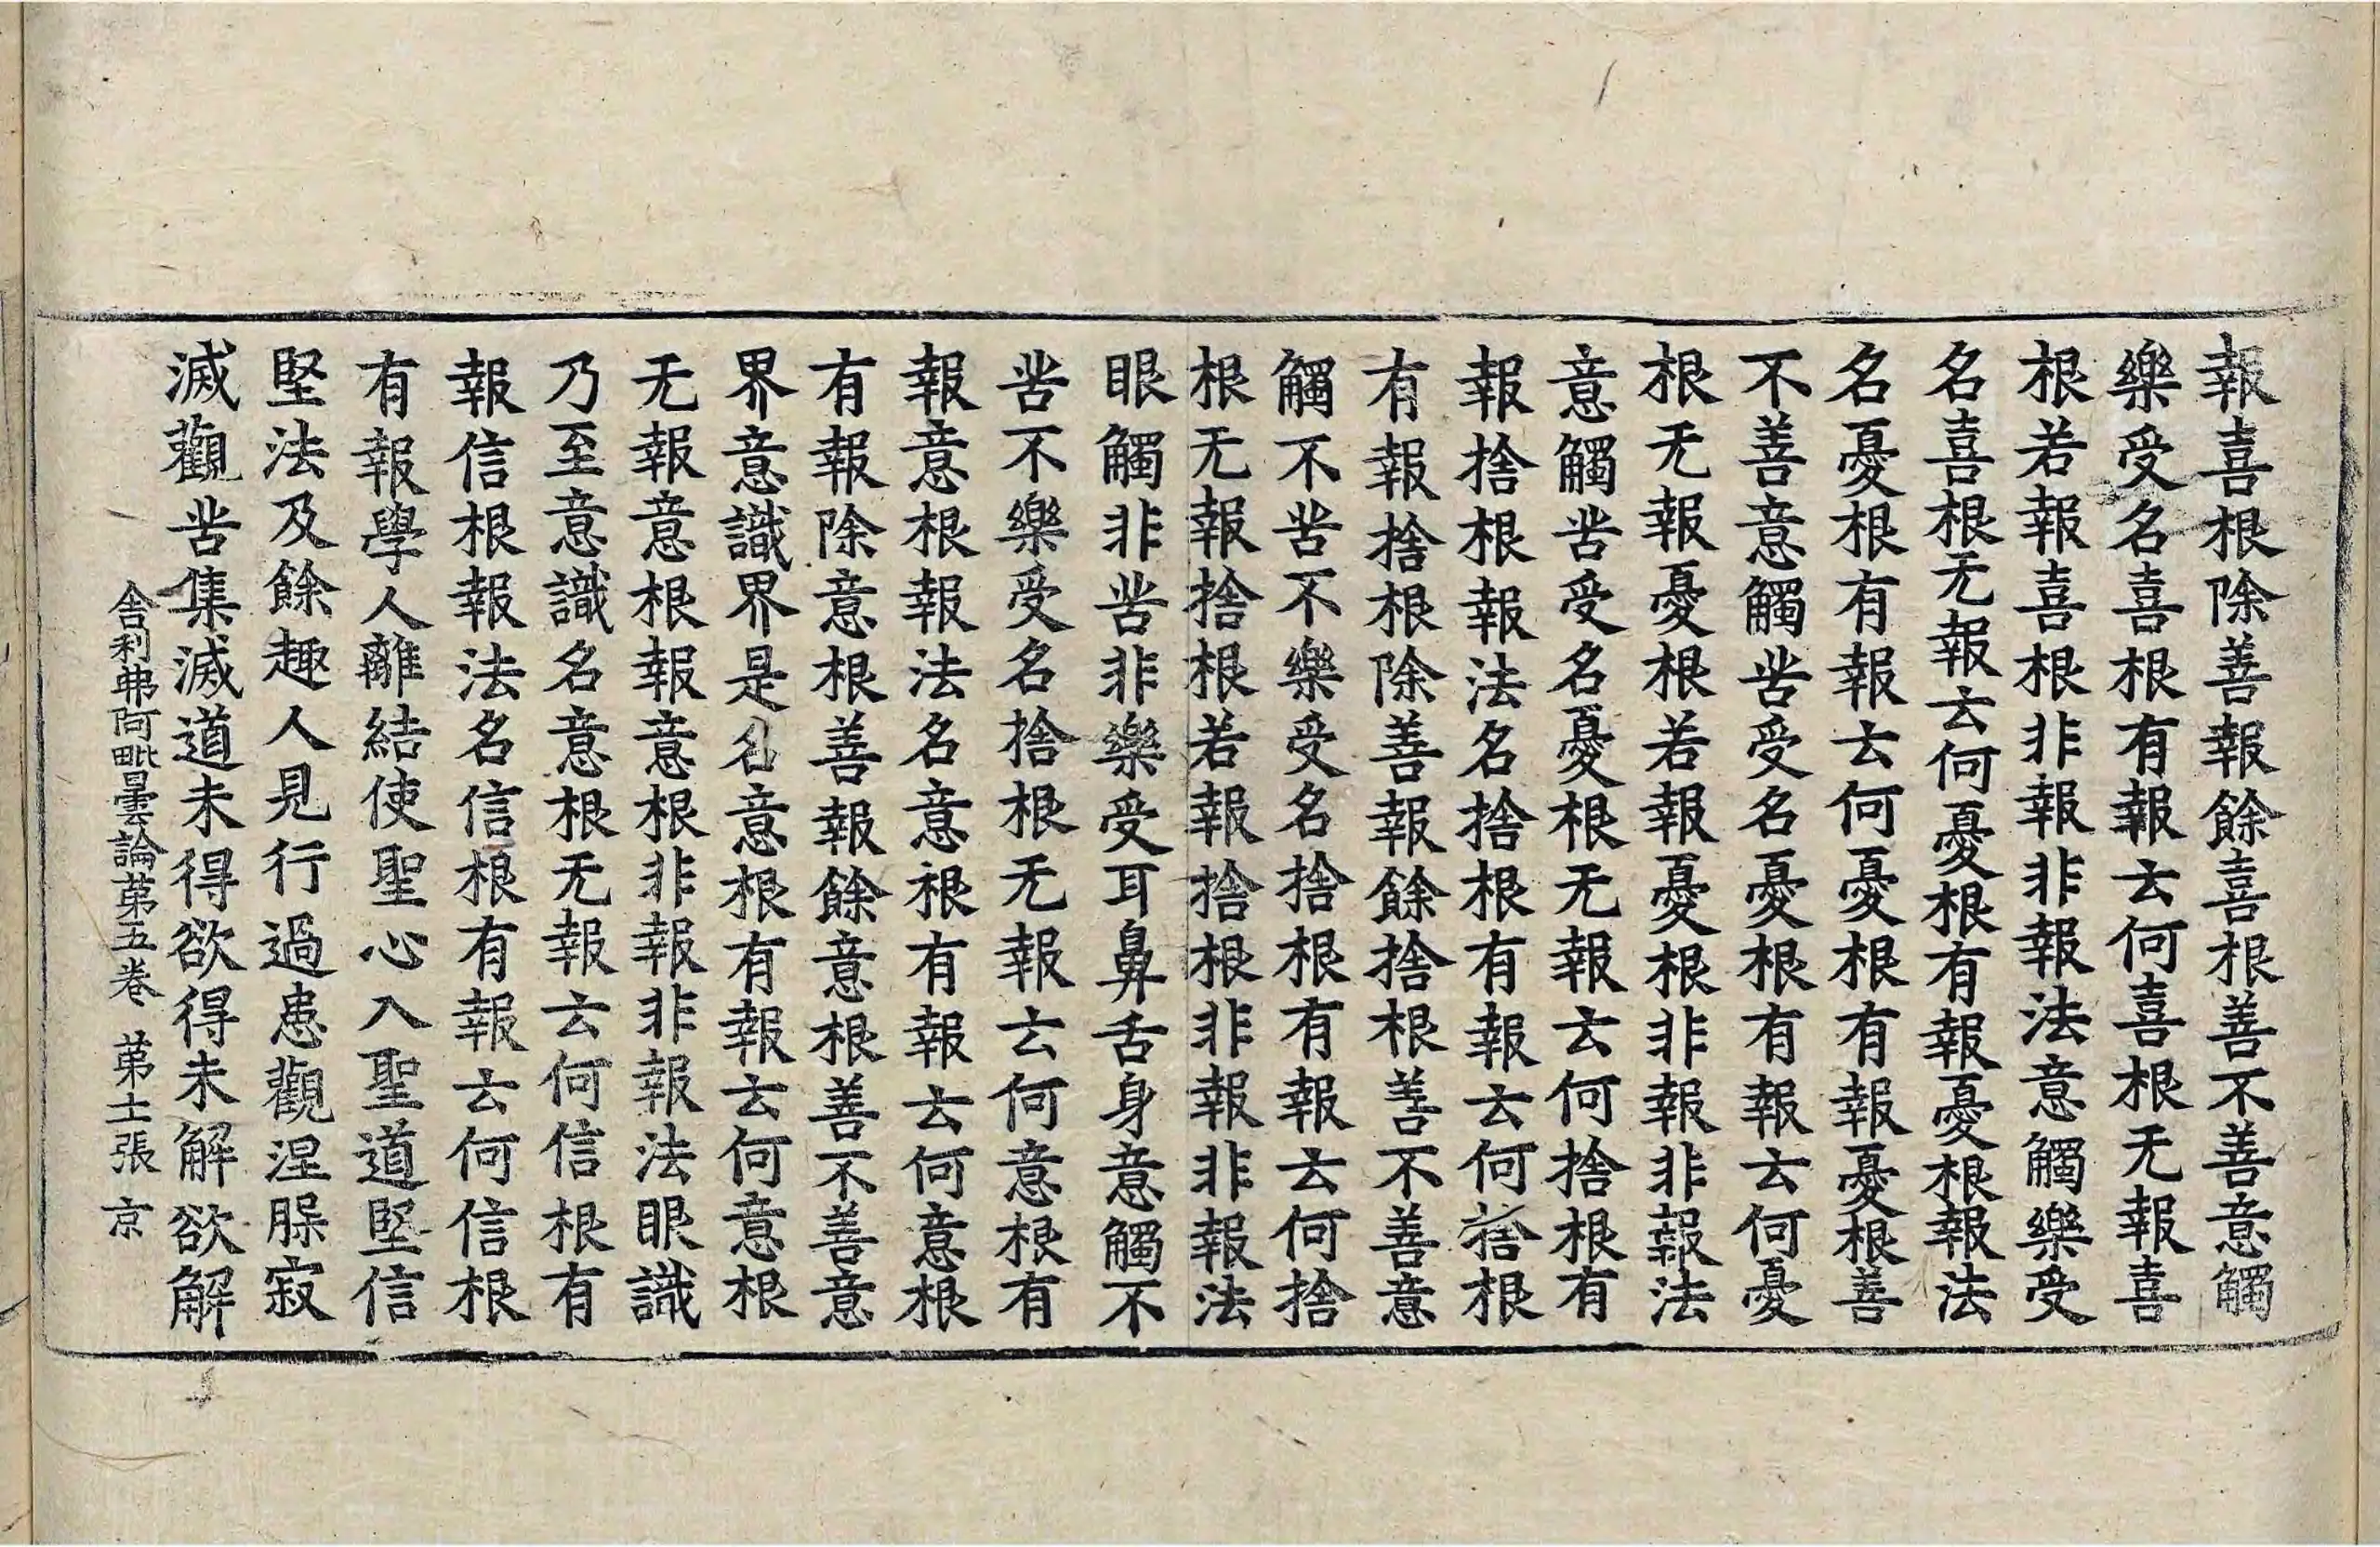 報喜根除善報餘喜根善不善意觸
樂受名喜根有報云何喜根无報喜
根若報喜根非報非報法意觸樂受
名喜根无報云何憂根有報憂根報法
名憂根有報云何憂根有報憂根善
不善意觸苦受名憂根有報云何憂
根无報憂根若報憂根非報非報法
意觸苦受名憂根无報云何捨根有
報捨根報法名捨根有報云何捨根
有報捨根除善報餘捨根善不善意
觸不苦不樂受名捨根有報云何捨
根无報捨根若報捨根非報非報法
眼觸非苦非樂受耳鼻舌身意觸不
苦不樂受名捨根无報云何意根有
報意根報法名意根有報云何意根
有報除意根善報餘意根善不善意
界意識界是名意根有報云何意根
无報意根報意根非報非報法眼識
乃至意識名意根无報云何信根有
報信根報法名信根有報云何信根
有報學人離結使聖心入聖道堅信
堅法及餘趣人見行過患觀涅槃寂
滅觀苦集滅道未得欲得未解欲解
舍利弗阿毗曇論第五卷 第十一張 京